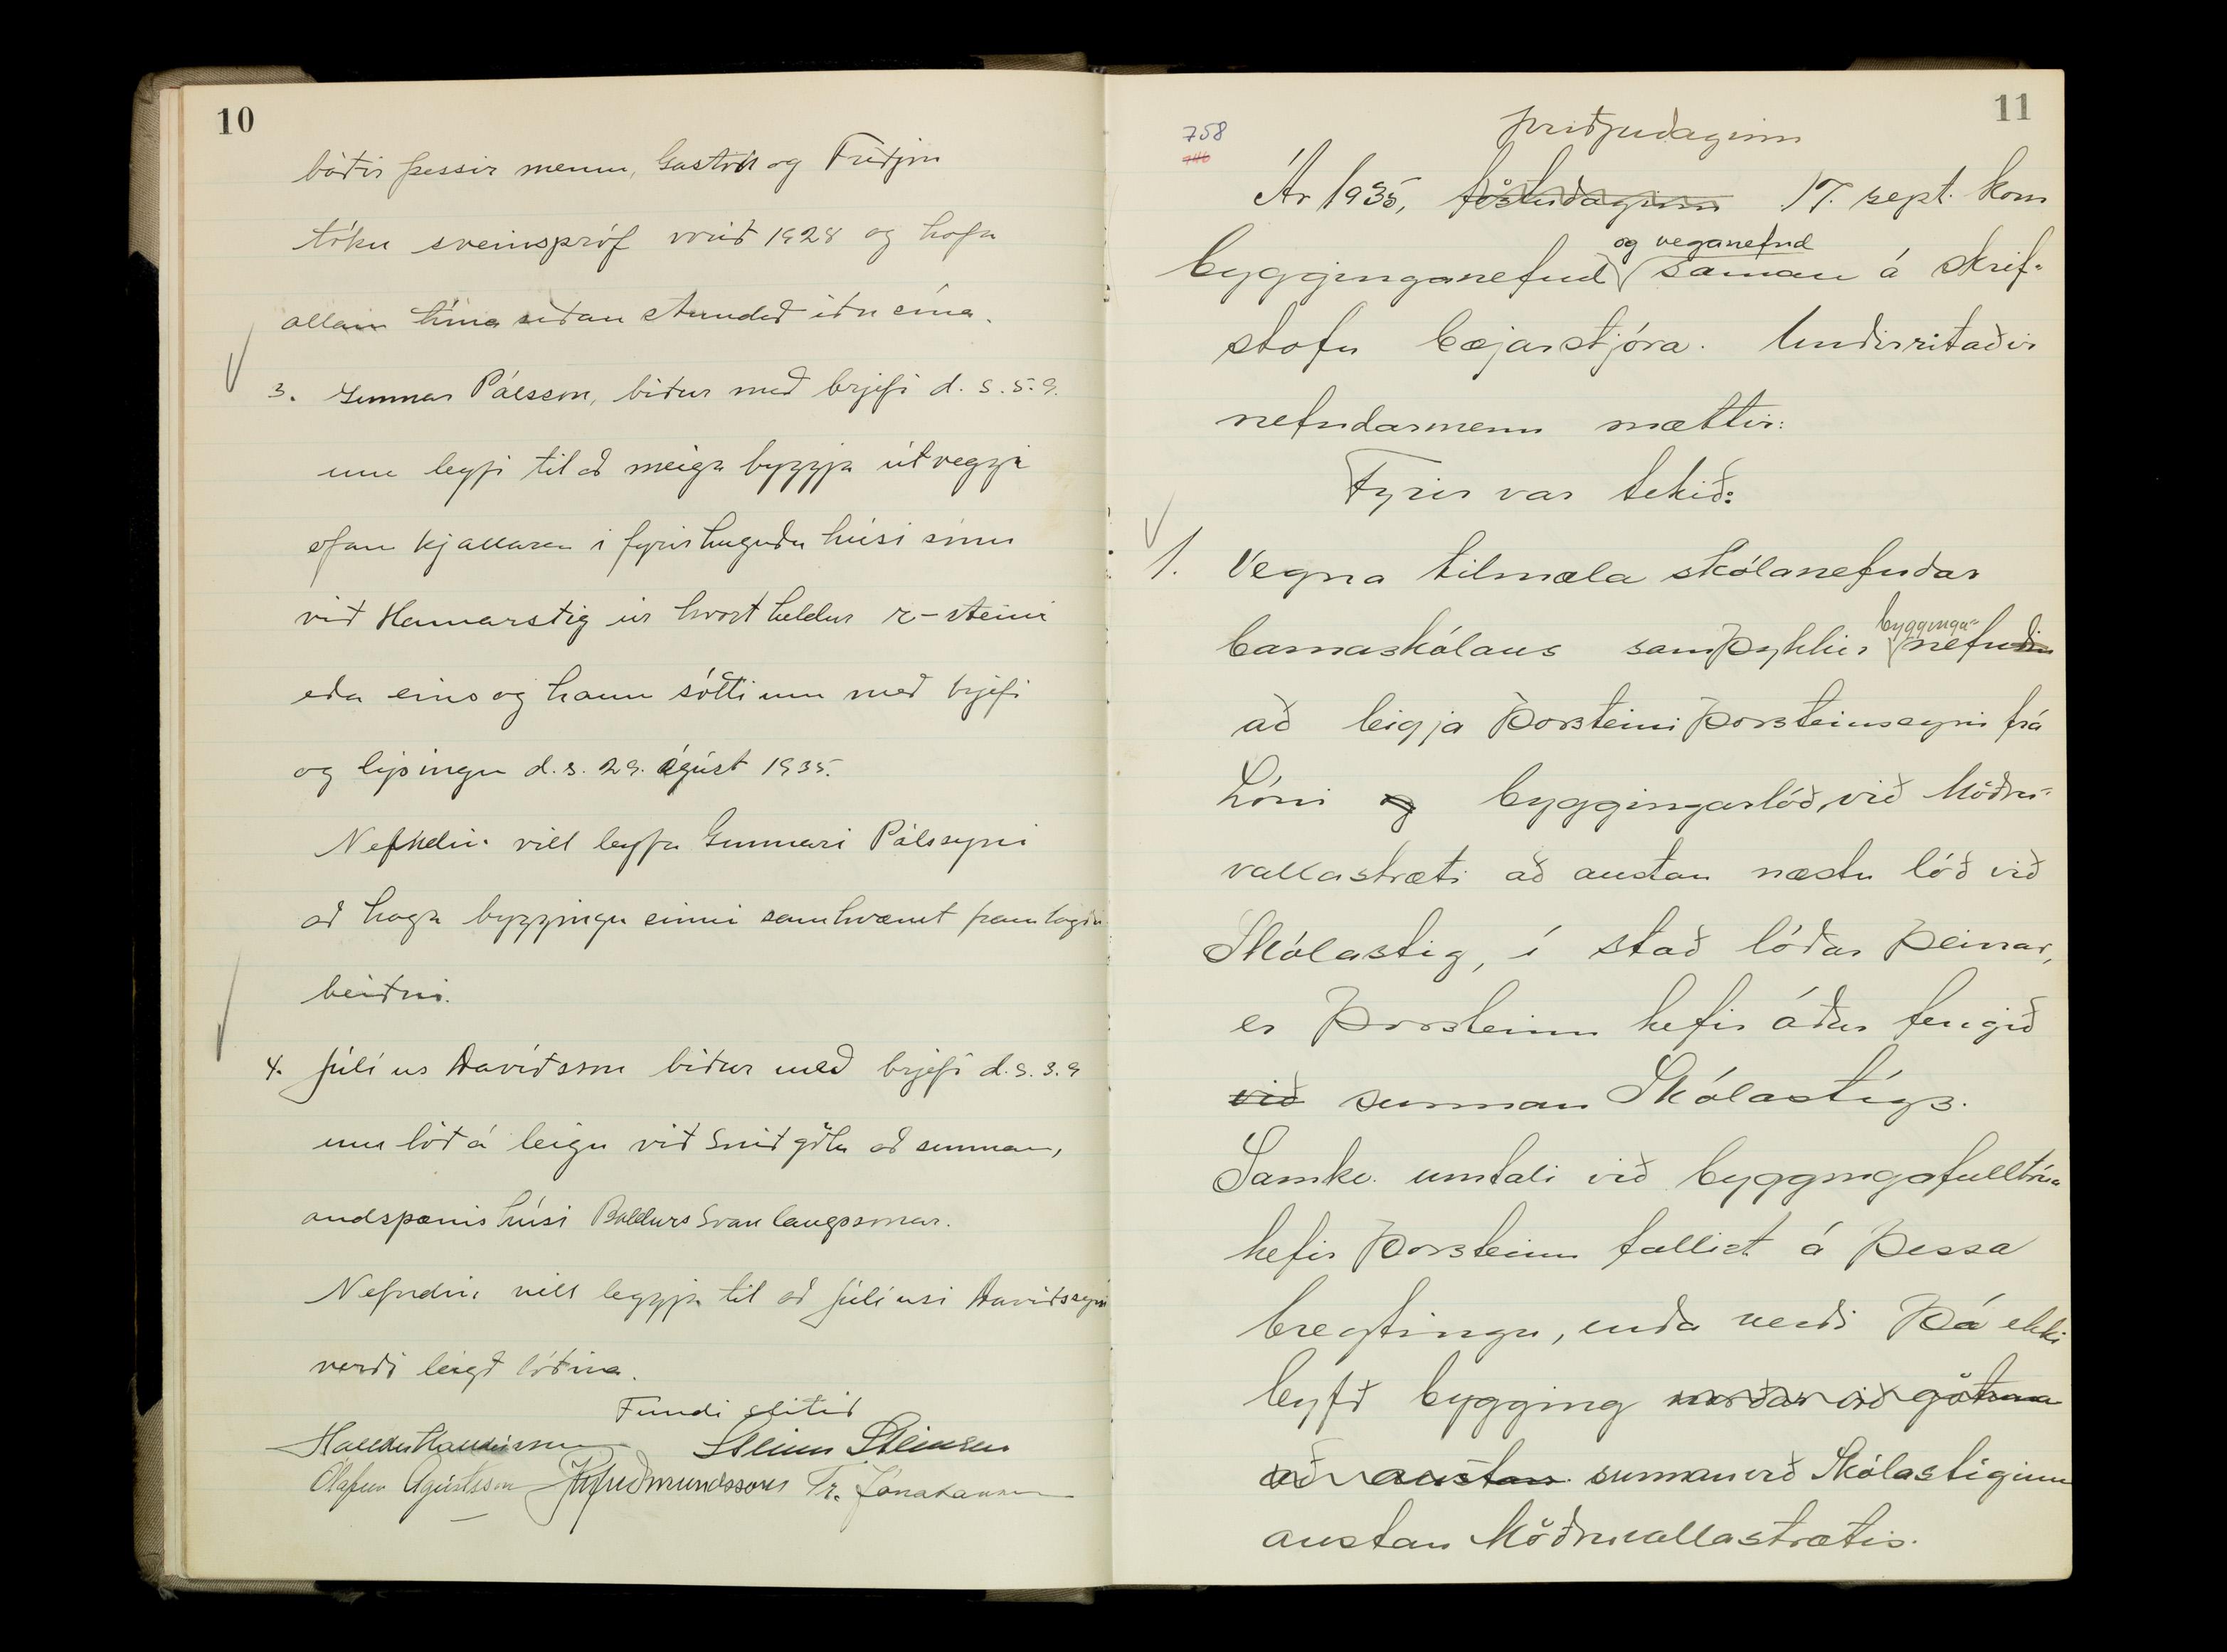 10
báðir þessir menn, Gaston og Friðjón
tóku sveinspróf vorið 1928 og hafa
allan tíma síðan stundað iðn sína.
3. Gunnar Pálsson, biður með brjefi d. s. 5. 9.
um leyfi til að meiga byggja útveggi
ofan kjallara í fyrirhuguðu húsi sínu
við Hamarstig úr hvort heldur r-steini
eða eins og hann sótti um með brjefi
og lýsingu d.s. 29. ágúst 1935.
Nefndin vill leyfa Gunnari Pálssyni
að haga byggingu sinni samkvæmt framlagðri
beiðni.
4. Júlíus Davíðsson biður með brjefi d.s. 3.9
um lóð á leigu við Snið götu að sunnan,
andspænis húsi Baldurs Svanlaugssonar.
Nefndin vill leggja til að Júlíusi Davíðssyni
verði leigð lóðina.
Fundi slitið
Halldór Halldórsson Steinn Steinsen
Ólafur Ágústsson Guðmundsson Tr. Jónatansson
11
758
746
þriðjudaginn
Ár 1935, föstudaginn 17. sept. kom
og veganefnd
bygginganefnd saman á skrif-
stofu bæjarstjóra. Undirritaðir
nefndarmenn mættir:
Fyrir var tekið:
1. Vegna tilmæla skólanefndar
bygginga-
barnaskólans samþykkir nefndin
að leigja Þorsteini Þorsteinssyni frá
Lóni og byggingarlóð við Möðru-
vallastræti að austan næstu lóð við
Skólastig, í stað lóðar þeirrar,
er Þorsteinn hefir áður fengið
við sunnan Skólastígs.
Samkv. umtali við byggingafulltrúa
hefir Þorsteinn fallist á þessa
breytingu, enda verði þá ekki
leyfð bygging norðan við götuna
að austan sunnan við Skólastiginn
austan Möðruvallastrætis.